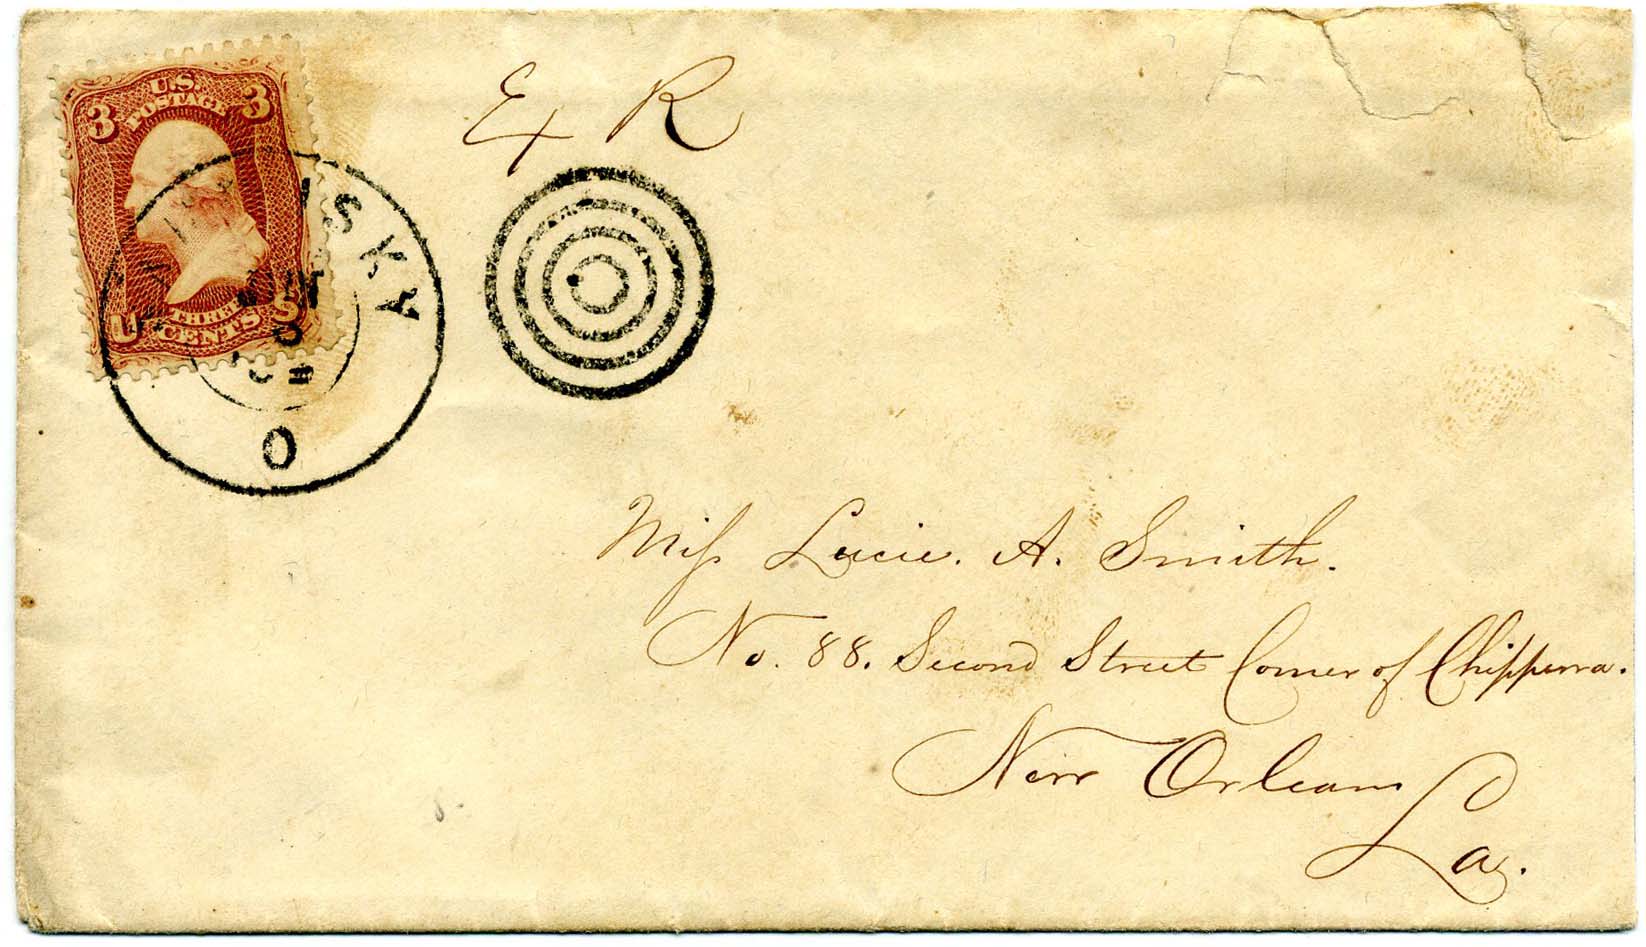 U.S.
POSTAGE
3 3
THREE
CENTS
U S
SKY
O
Ex R
Miss Lucie. A. Smith.
No. 88. Second Street Corner of Chippewa.
New Orleans
La.